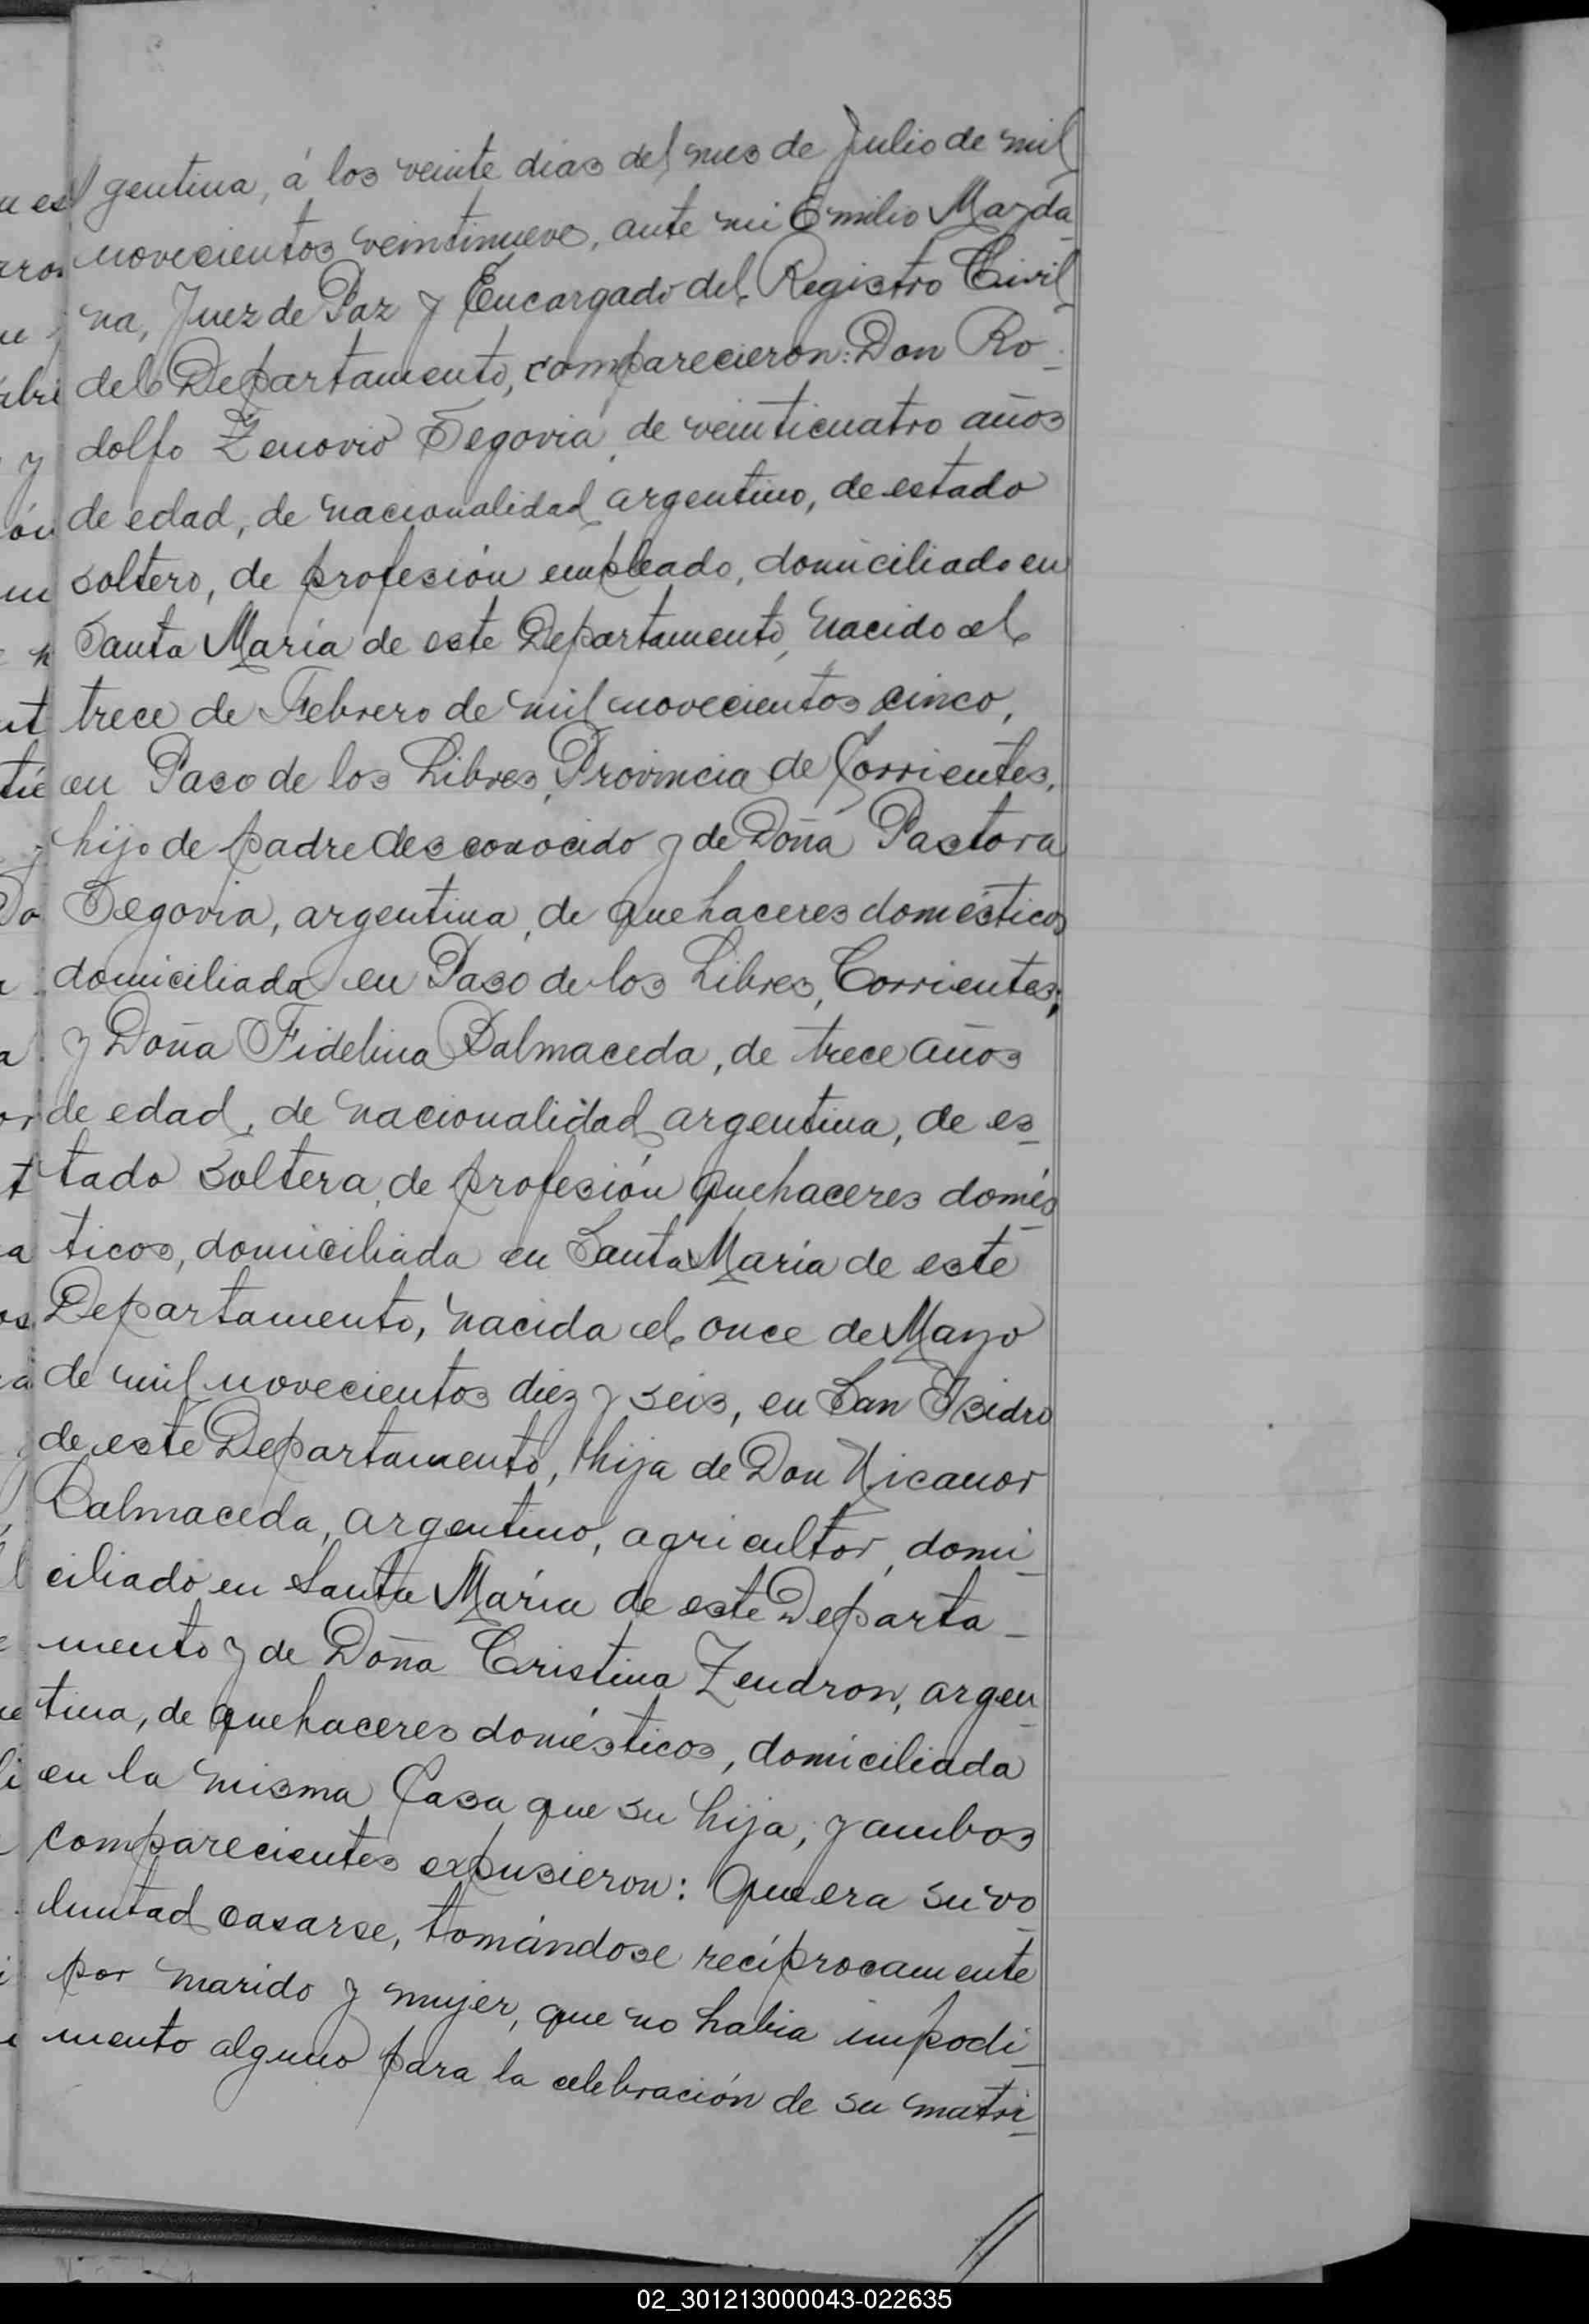 gentina, á los veinte dias del mes de Julio de mil
novecientos veintinueve, ante mi Emilio Mayda
na, Juez de Paz y Encargado del Registro Civil
del Departamento, comparecieron: Don Ro-
dolfo Zenovio Segovia, de veinticuatro años
de edad, de nacionalidad argentino, de estado
soltero, de profesión empleado, domiciliado en
Santa María de este Departamento, nacido el
trece de Febrero de mil novecientos cinco,
en Paso de los Libres, Provincia de Corrientes,
hijo de padre desconocido y de Doña Pastora
Segovia, argentina, de quehaceres domésticos
domiciliada en Paso de los Libres, Corrientes;
y Doña Fidelina Balmaceda, de trece años
de edad, de nacionalidad argentina, de es-
tado soltera, de profesión quehaceres domés
ticos, domiciliada en Santa María de este
Departamento, nacida el once de Mayo
de mil novecientos diez y seis, en San Isidro
de este Departamento, hija de Don Nicanor
Balmaceda, argentino, agricultor, domi-
ciliado en Santa María de este Departa-
mento y de Doña Cristina Zendron, argen
tina, de quehaceres domésticos, domiciliada
en la misma Casa que su hija, y ambos
comparecientes expusieron: Que era su vo-
luntad casarse, tomándose recíprocamente
por marido y mujer, que no habia impedi-
mento alguno para la celebración de su matri-
02_301213000043-022635